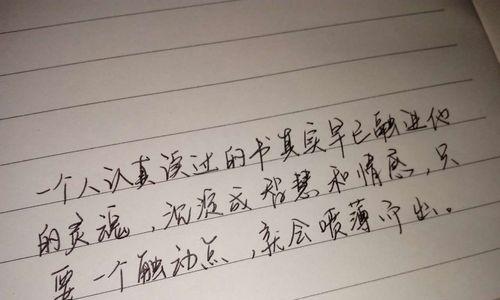 一个人认真读过的书其实早已融进他
的灵魂，沉淀成智慧和情感，只
要一个触动点，就会喷薄而出。